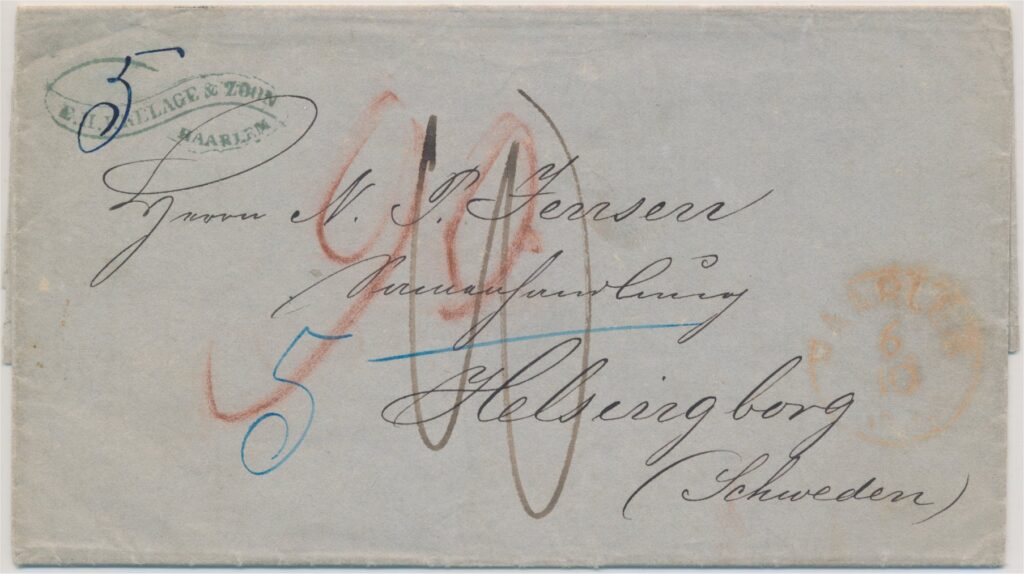 5
E. H. KRELAGE & ZOON
HAARLEM
Herrn N. P. Jensen
Samenhandlung
Helsingborg
(Schweden)
90
5
HAARLEM
6
10